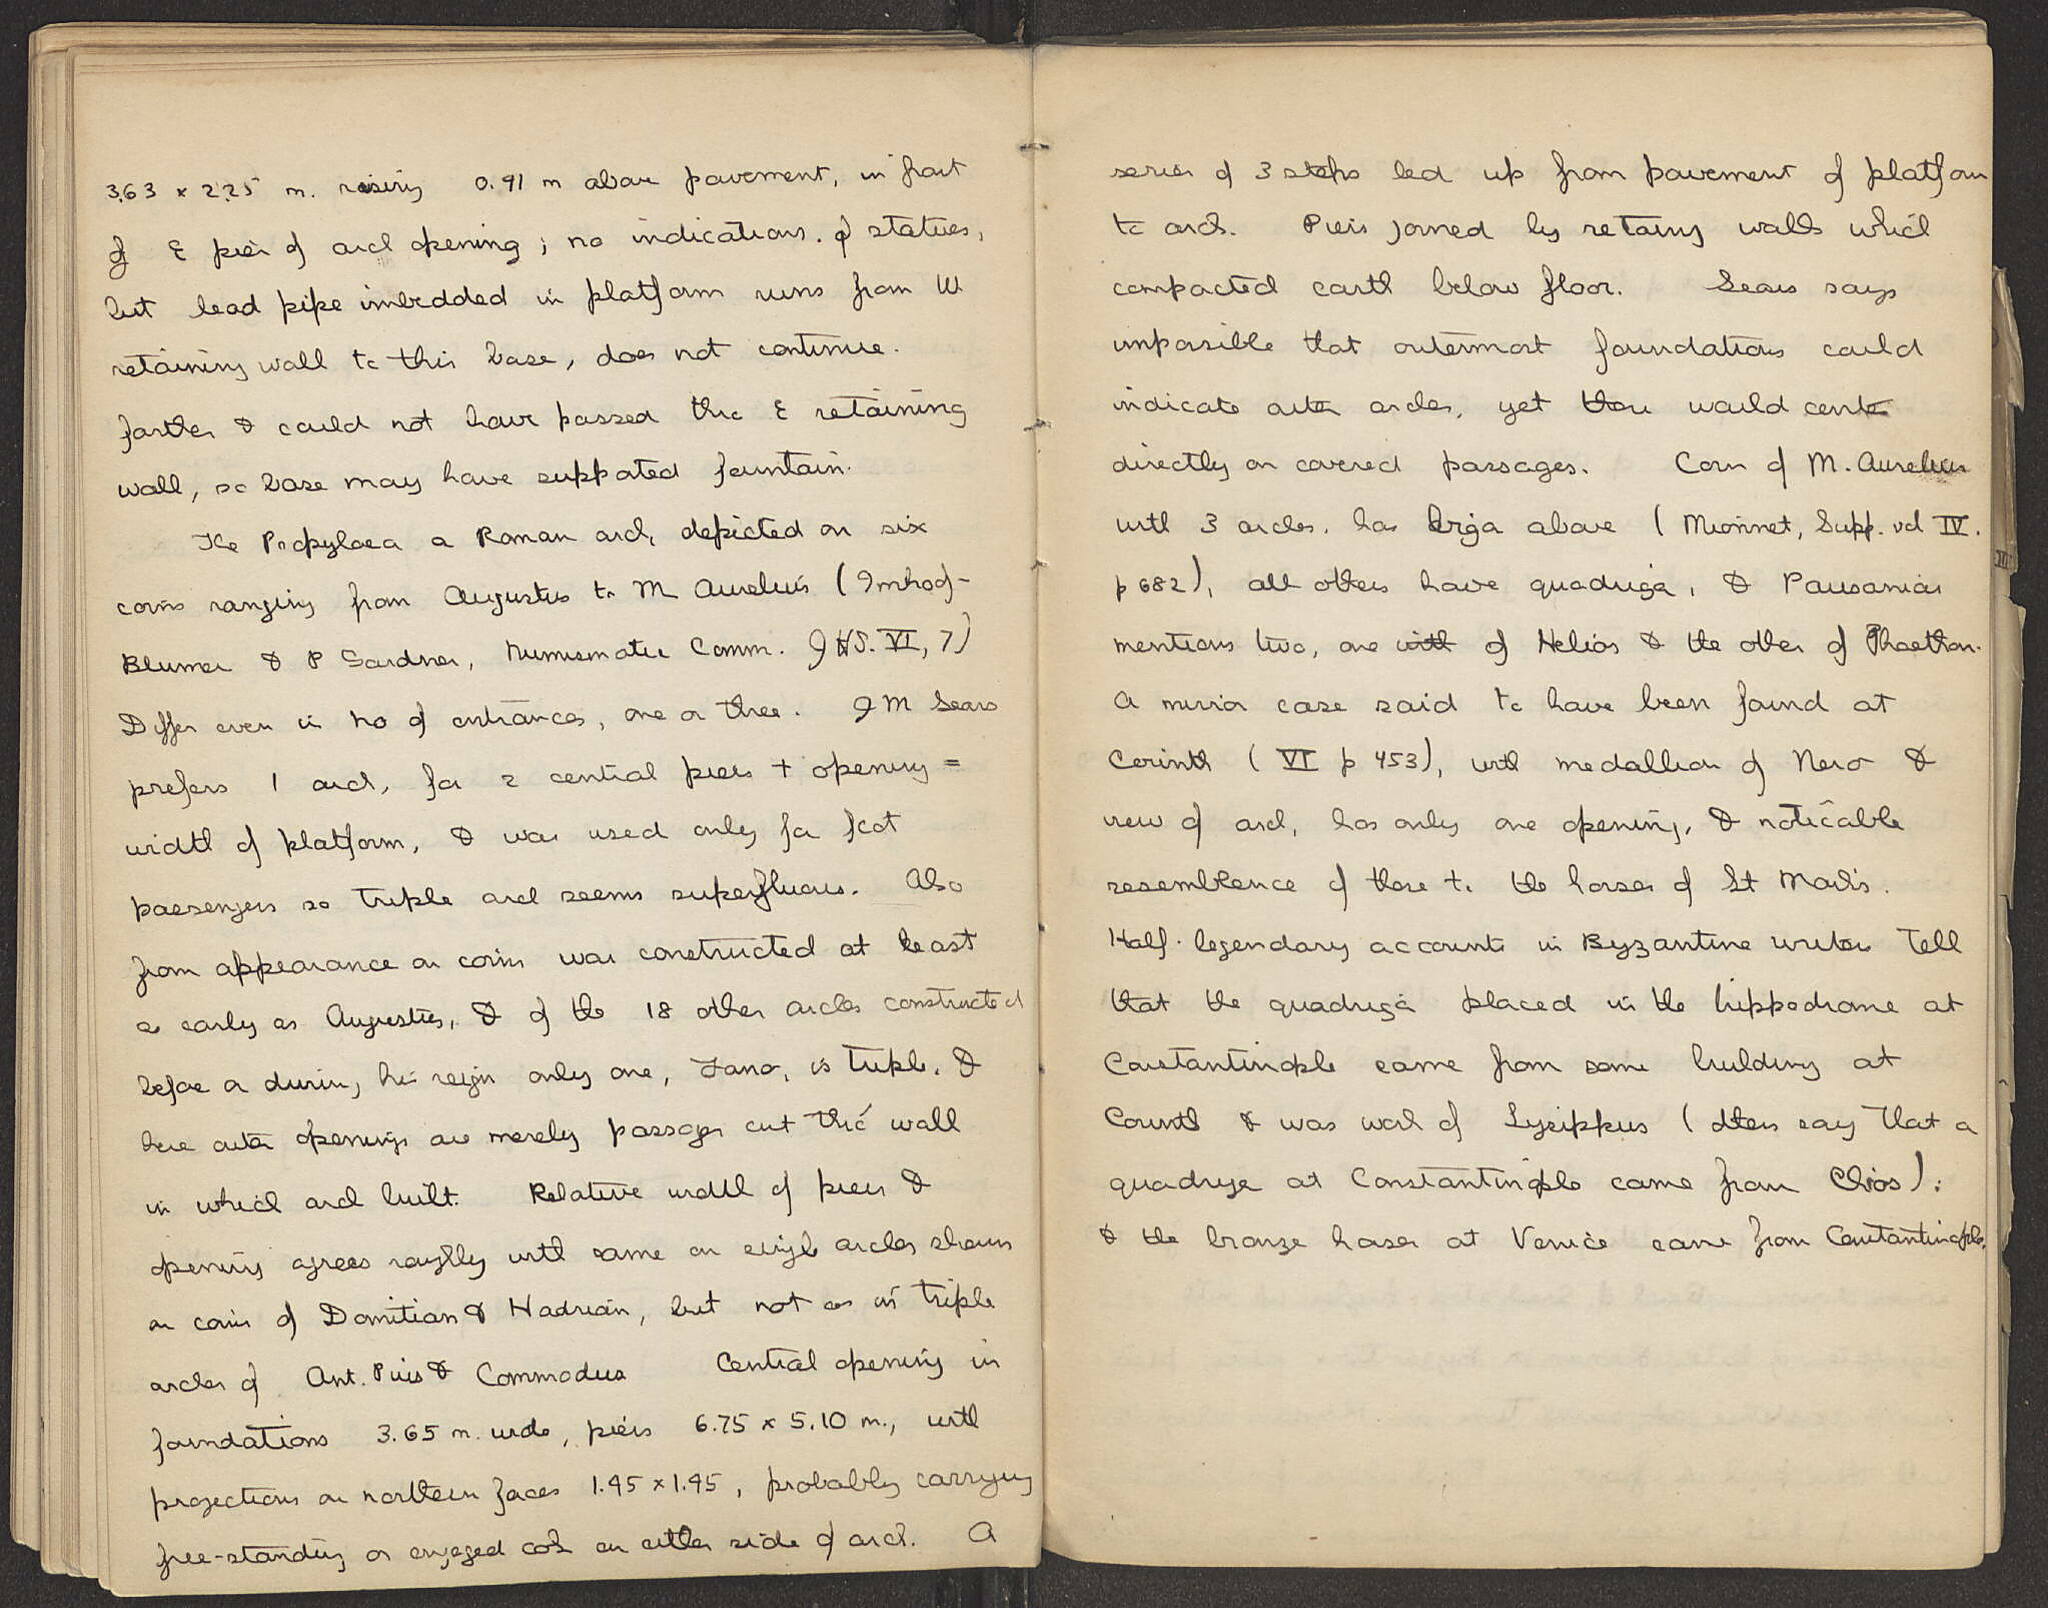 3.63 x 2.25 m. rising 0.91 m above pavement, in front
of E pier of arch opening; no indications. of statues,
but lead pipe imbedded in platform runs from W
retaining wall to this base, does not continue.
farther & could not have passed thro E retaining
wall, so base may have supported fountain.
The Propylaea a Roman arch, depicted on six
coins ranging from Augustus to M Aurelius (Imhoof-
Blumer & P Gardner, Numismatic Comm. JHS. VI, 7)
Differ even in no of entrances, one or three. J M Sears
prefers 1 arch, for 2 central piers + opening =
width of platform, & was used only for foot
passengers so triple arch seems superfluous. Also
from appearance on coins was constructed at least
as early as Augustus, & of the 18 other arches constructed
before or during his reign only one, Fano, is triple. &
here outer openings are merely passages cut thro' wall
in which arch built. Relative width of piers &
opening agrees roughly with same on single arches shown
on coins of Domitian & Hadrian, but not as in triple
arches of Ant. Pius & Commodus Central opening in
foundations 3.65 m. wide, piers 6.75 x 5.10 m., with
projections on northern faces 1.45 x 1.45, probably carrying
free-standing or engaged cols on either side of arch. A
series of 3 steps led up from pavement of platform
to arch. Piers joined by retaing walls which
compacted earth below floor. Sears says
impossible that outermost foundations could
indicate outer arches, yet these would center
directly on covered passages. Corn of M. Aurelius
with 3 arches. has biga above (Mionnet, Supp. vol IV.
p 682), all others have quadriga, & Pausanias
mentions two, one with of Helios & the other of Phaethon.
A mirror case said to have been found at
Corinth (VI p 453), with medallion of Nero &
view of arch, has only one opening, & noticable
resemblence of these to the horses of St Mark's.
Half-legendary accounts in Byzantine writers tell
that the quadriga placed in the hippodrome at
Constantinople came from some building at
Corinth & was work of Lysippus (others say that a
quadriga at Constantinople came from Chios);
& the bronze horses at Venice came from Constantinople.